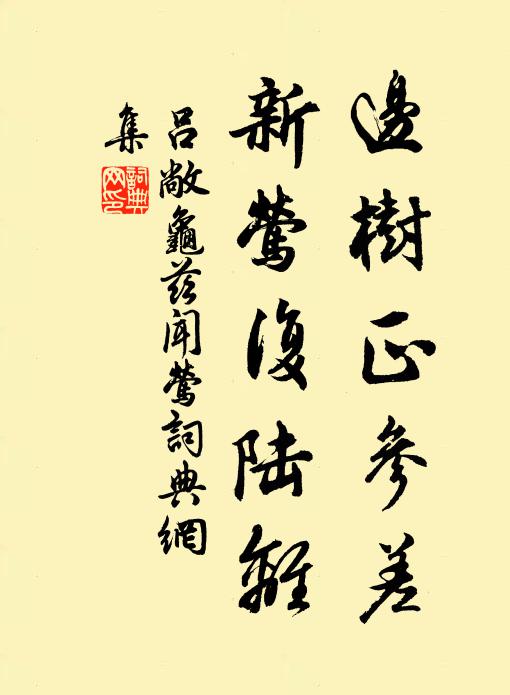 邊樹正參差
新鶯復陸離
呂敞龜茲聞鶯詞典網
集
詞典網印